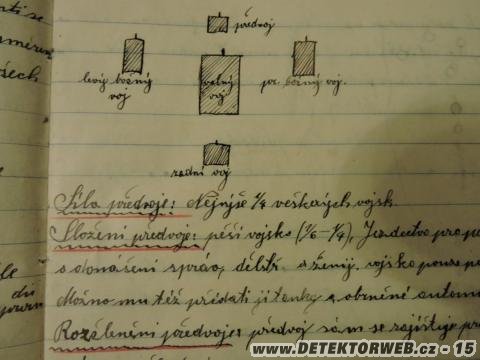 předvoj
levý bočný
voj
velný
voj
pr. bočný voj.
zadní voj
Síla předvoje: Nejvýše 1/4 veškerých vojsk.
Složení předvoje: pěší vojsko (1/6-1/4), Jezdectvo pro
o donášení zpráv, dělstř. a ženij. vojsko pouze
Možno mu též přidati ji tanky a obrněné autom
Rozčlenění předvoje: předvoj sám se zajišťuje
www.DETEKTORWEB.cz - 15